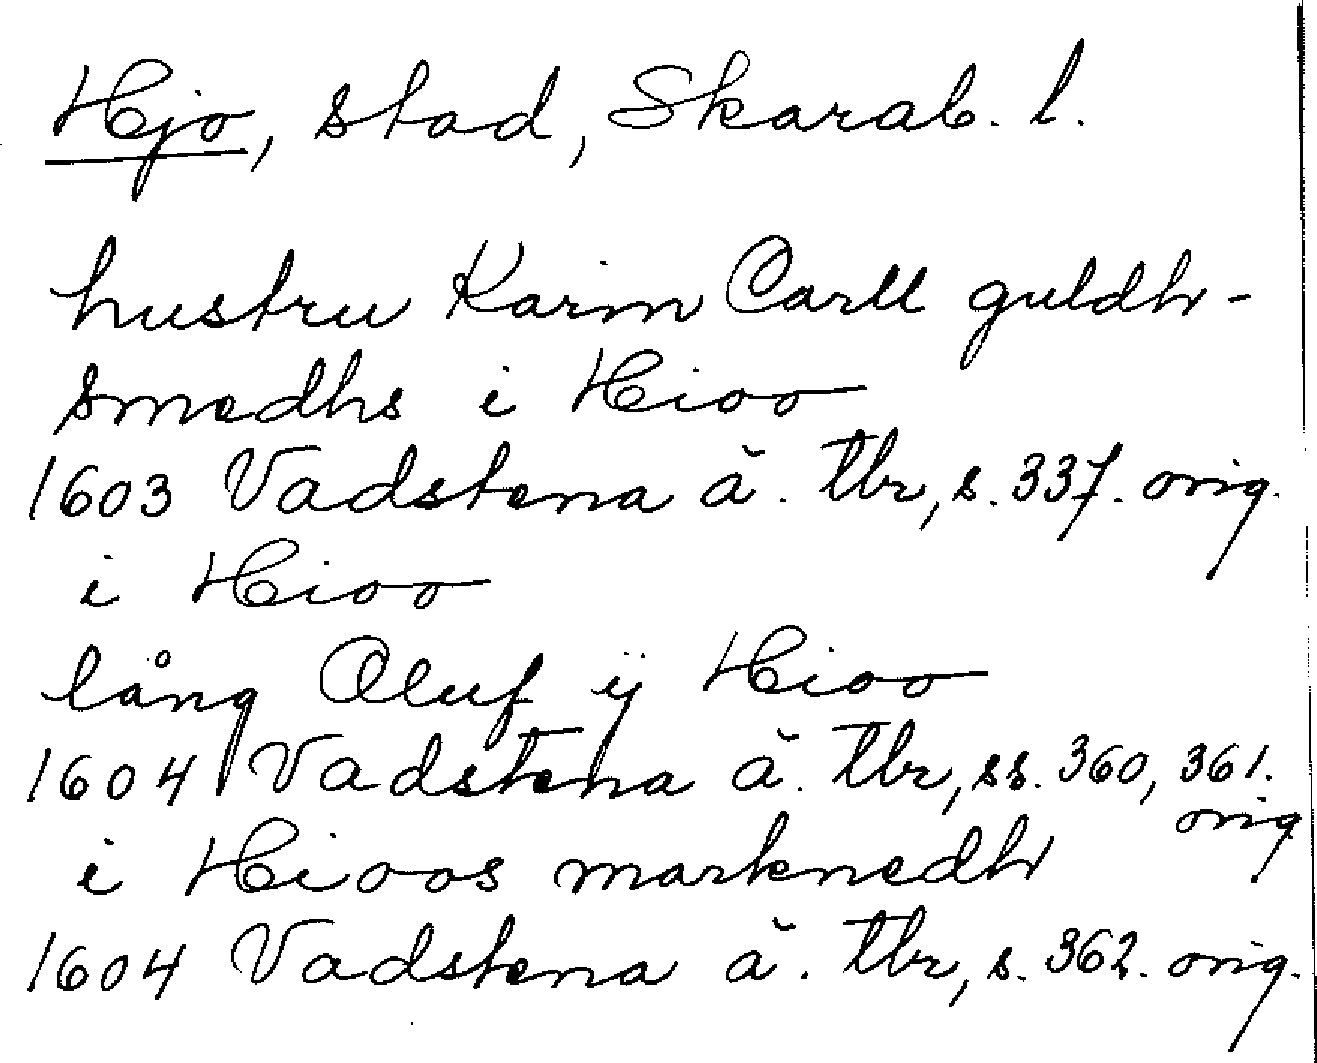 Hjo, stad, Skarab. l.
hustru Karin Carll guldh-
smedhs i Hioo
1603 Vadstena ä. tbr, s. 337. orig.
i Hioo
lång Oluf ÿ Hioo
1604 Vadstena ä. tbr, ss. 360, 361.
orig
i Hioos marknedh
1604 Vadstena ä. tbr, s. 362. orig.